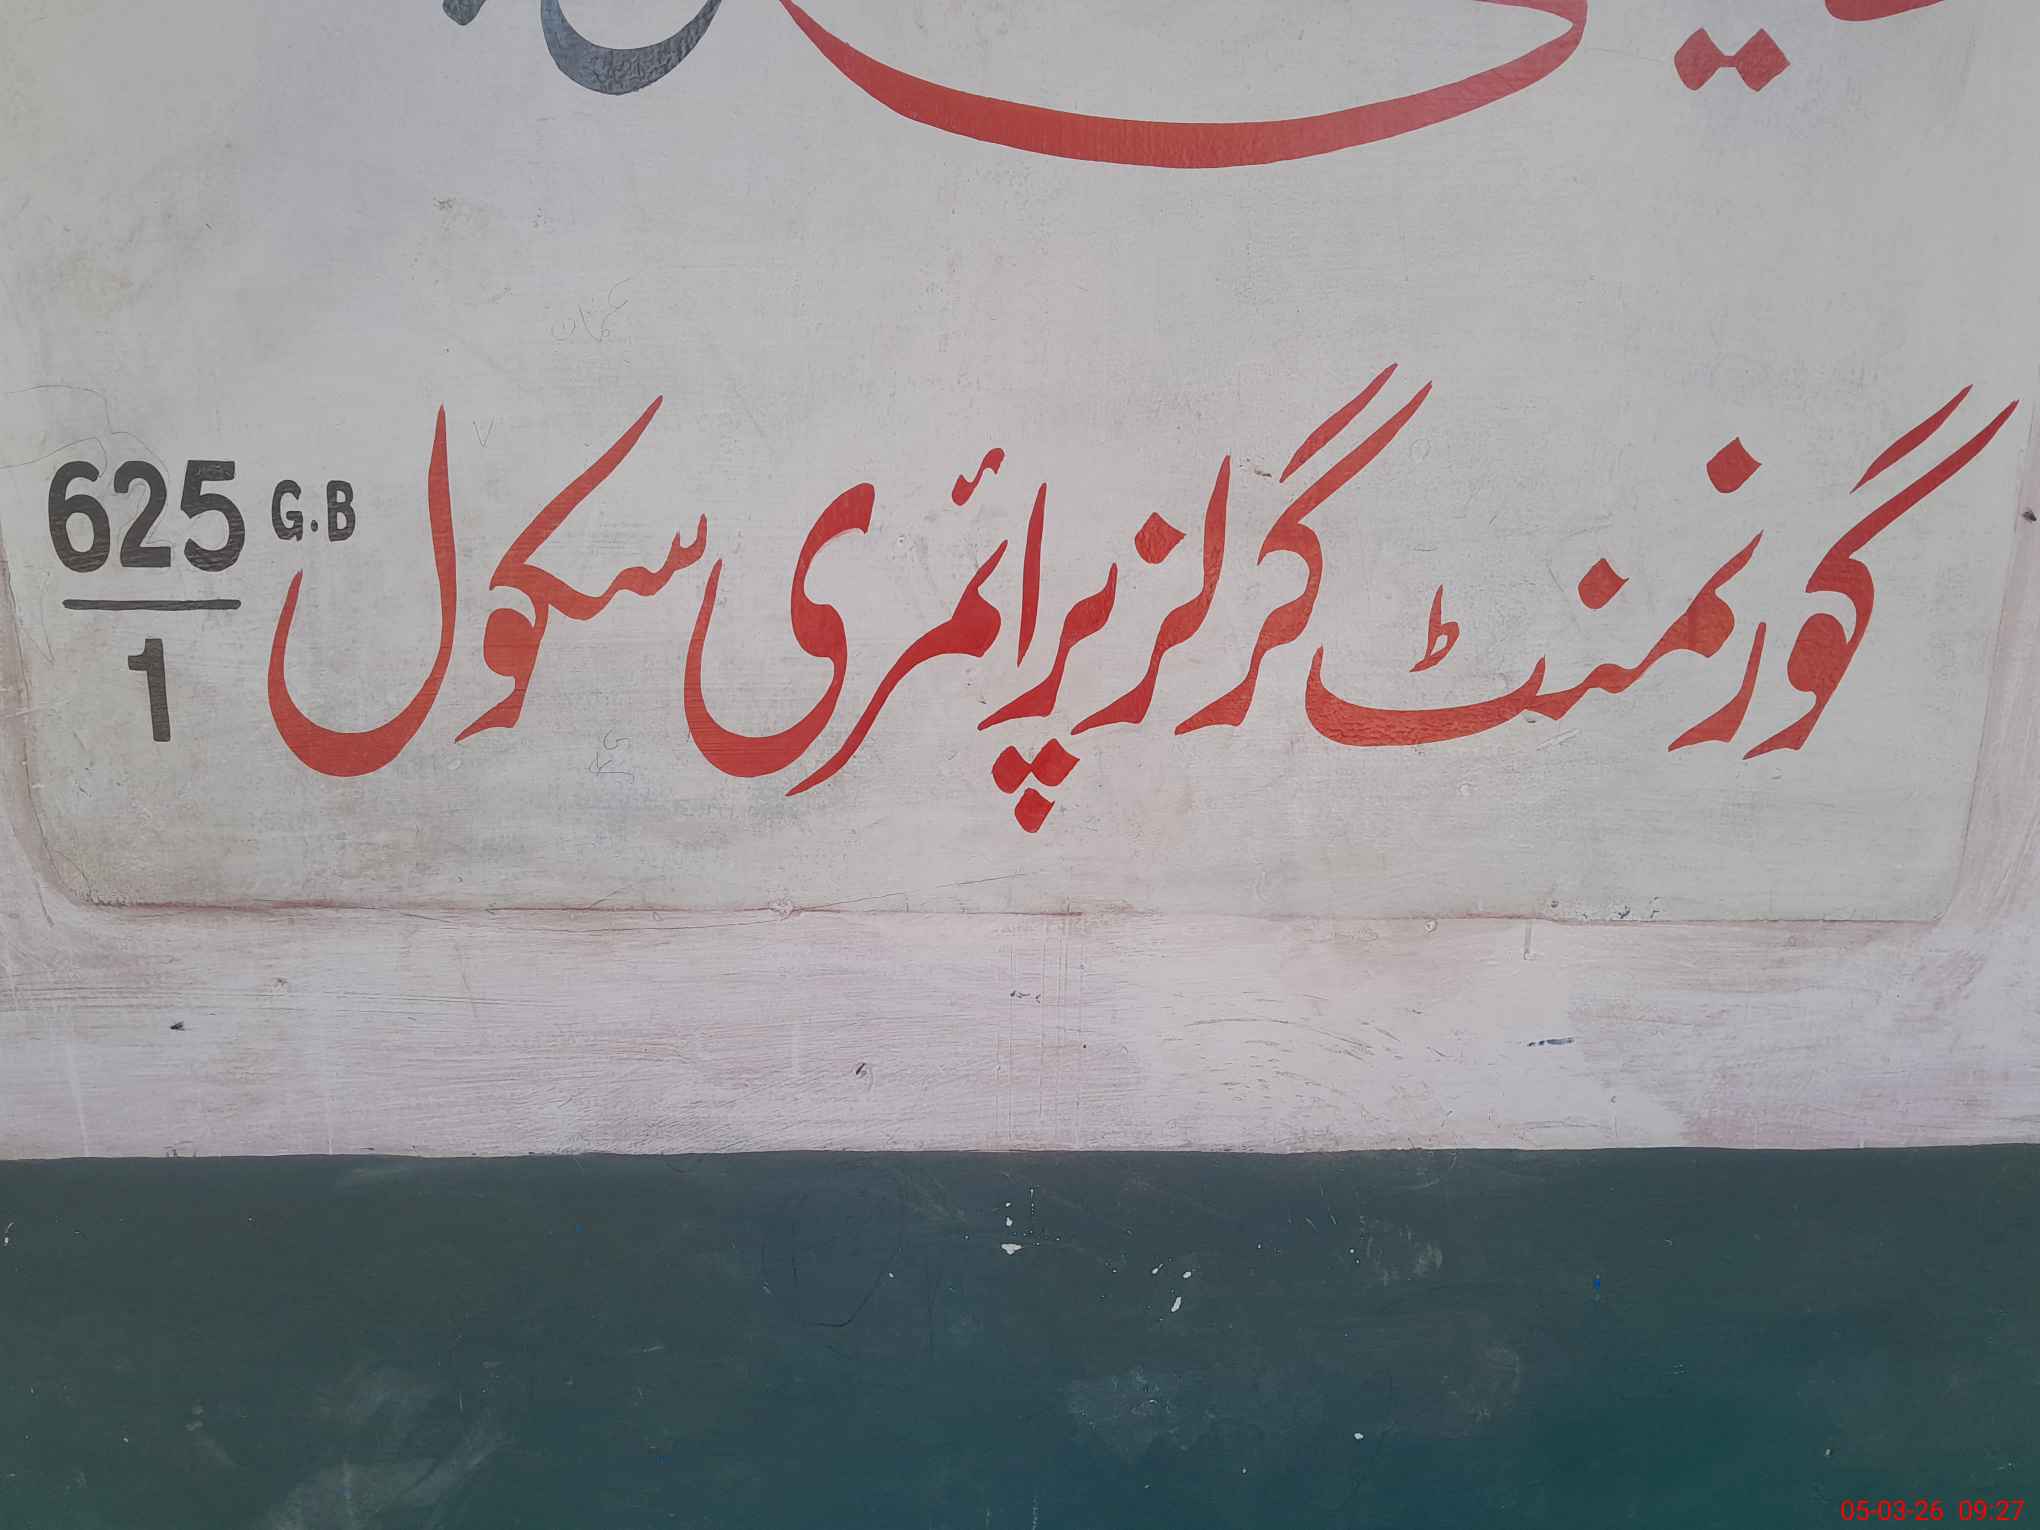 گورنمنٹ گرلز پرائمری سکول 625/1 G.B
05-03-26 09:27